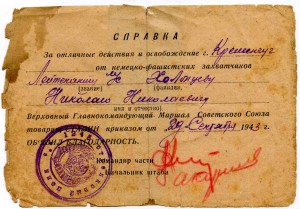 СПРАВКА
За отличные действия и освобождение г. Кременчуг
от немецко-фашистских захватчиков
Лейтенанту
(звание) (фамилия)
Николаю Николаевичу
(имя и отчество)
Верховный Главнокомандующий Маршал Советского Союза
товарищ СТАЛИН приказом от 29 Сентября 1943 г.
ОБЪЯВИЛ БЛАГОДАРНОСТЬ.
Командир части
Начальник штаба